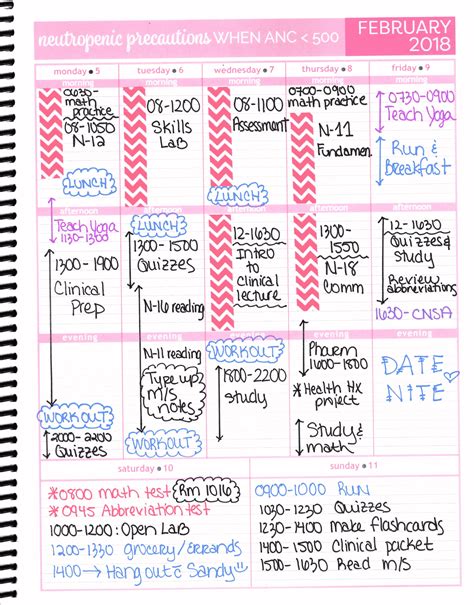 neutropenic precautions WHEN ANC < 500
FEBRUARY
2018
monday • 5
tuesday • 6
wednesday • 7
thursday • 8
friday • 9
0630-
math
practice
08-1050
N-12
LUNCH
08-1200
Skills
Lab
08-1100
Assessment
LUNCH
0700-0900
math practice
N-11
Fundamen.
0730-0900
Teach Yoga
Run &
Breakfast
afternoon
afternoon
afternoon
afternoon
afternoon
Teach Yoga
1130-1300
1300 - 1900
Clinical
Prep
LUNCH
1300 - 1500
Quizzes
N-16 reading
12-1630
Intro
to
Clinical
lecture
1300-
1550
N-18
Comm
12-1630
Quizzes &
study
Review
abbreviations
1630-CNSA
evening
evening
evening
evening
evening
WORKOUT
2000-2200
Quizzes
N-11 reading
Type up
m/s
notes
WORKOUT
WORKOUT
1800-2200
study
Pharm
1600-1800
*Health Hx
project
Study &
math
DATE
NITE
saturday • 10
*0800 math test Rm 1016
*0945 Abbreviation test
1000-1200: Open Lab
1200-1330 grocery/Errands
1400 → Hang out c Sandy
sunday • 11
0900-1000 RUN
1030-1230 Quizzes
1230-1400 make flashcards
1400-1500 Clinical packet
1500-1630 Read m/s